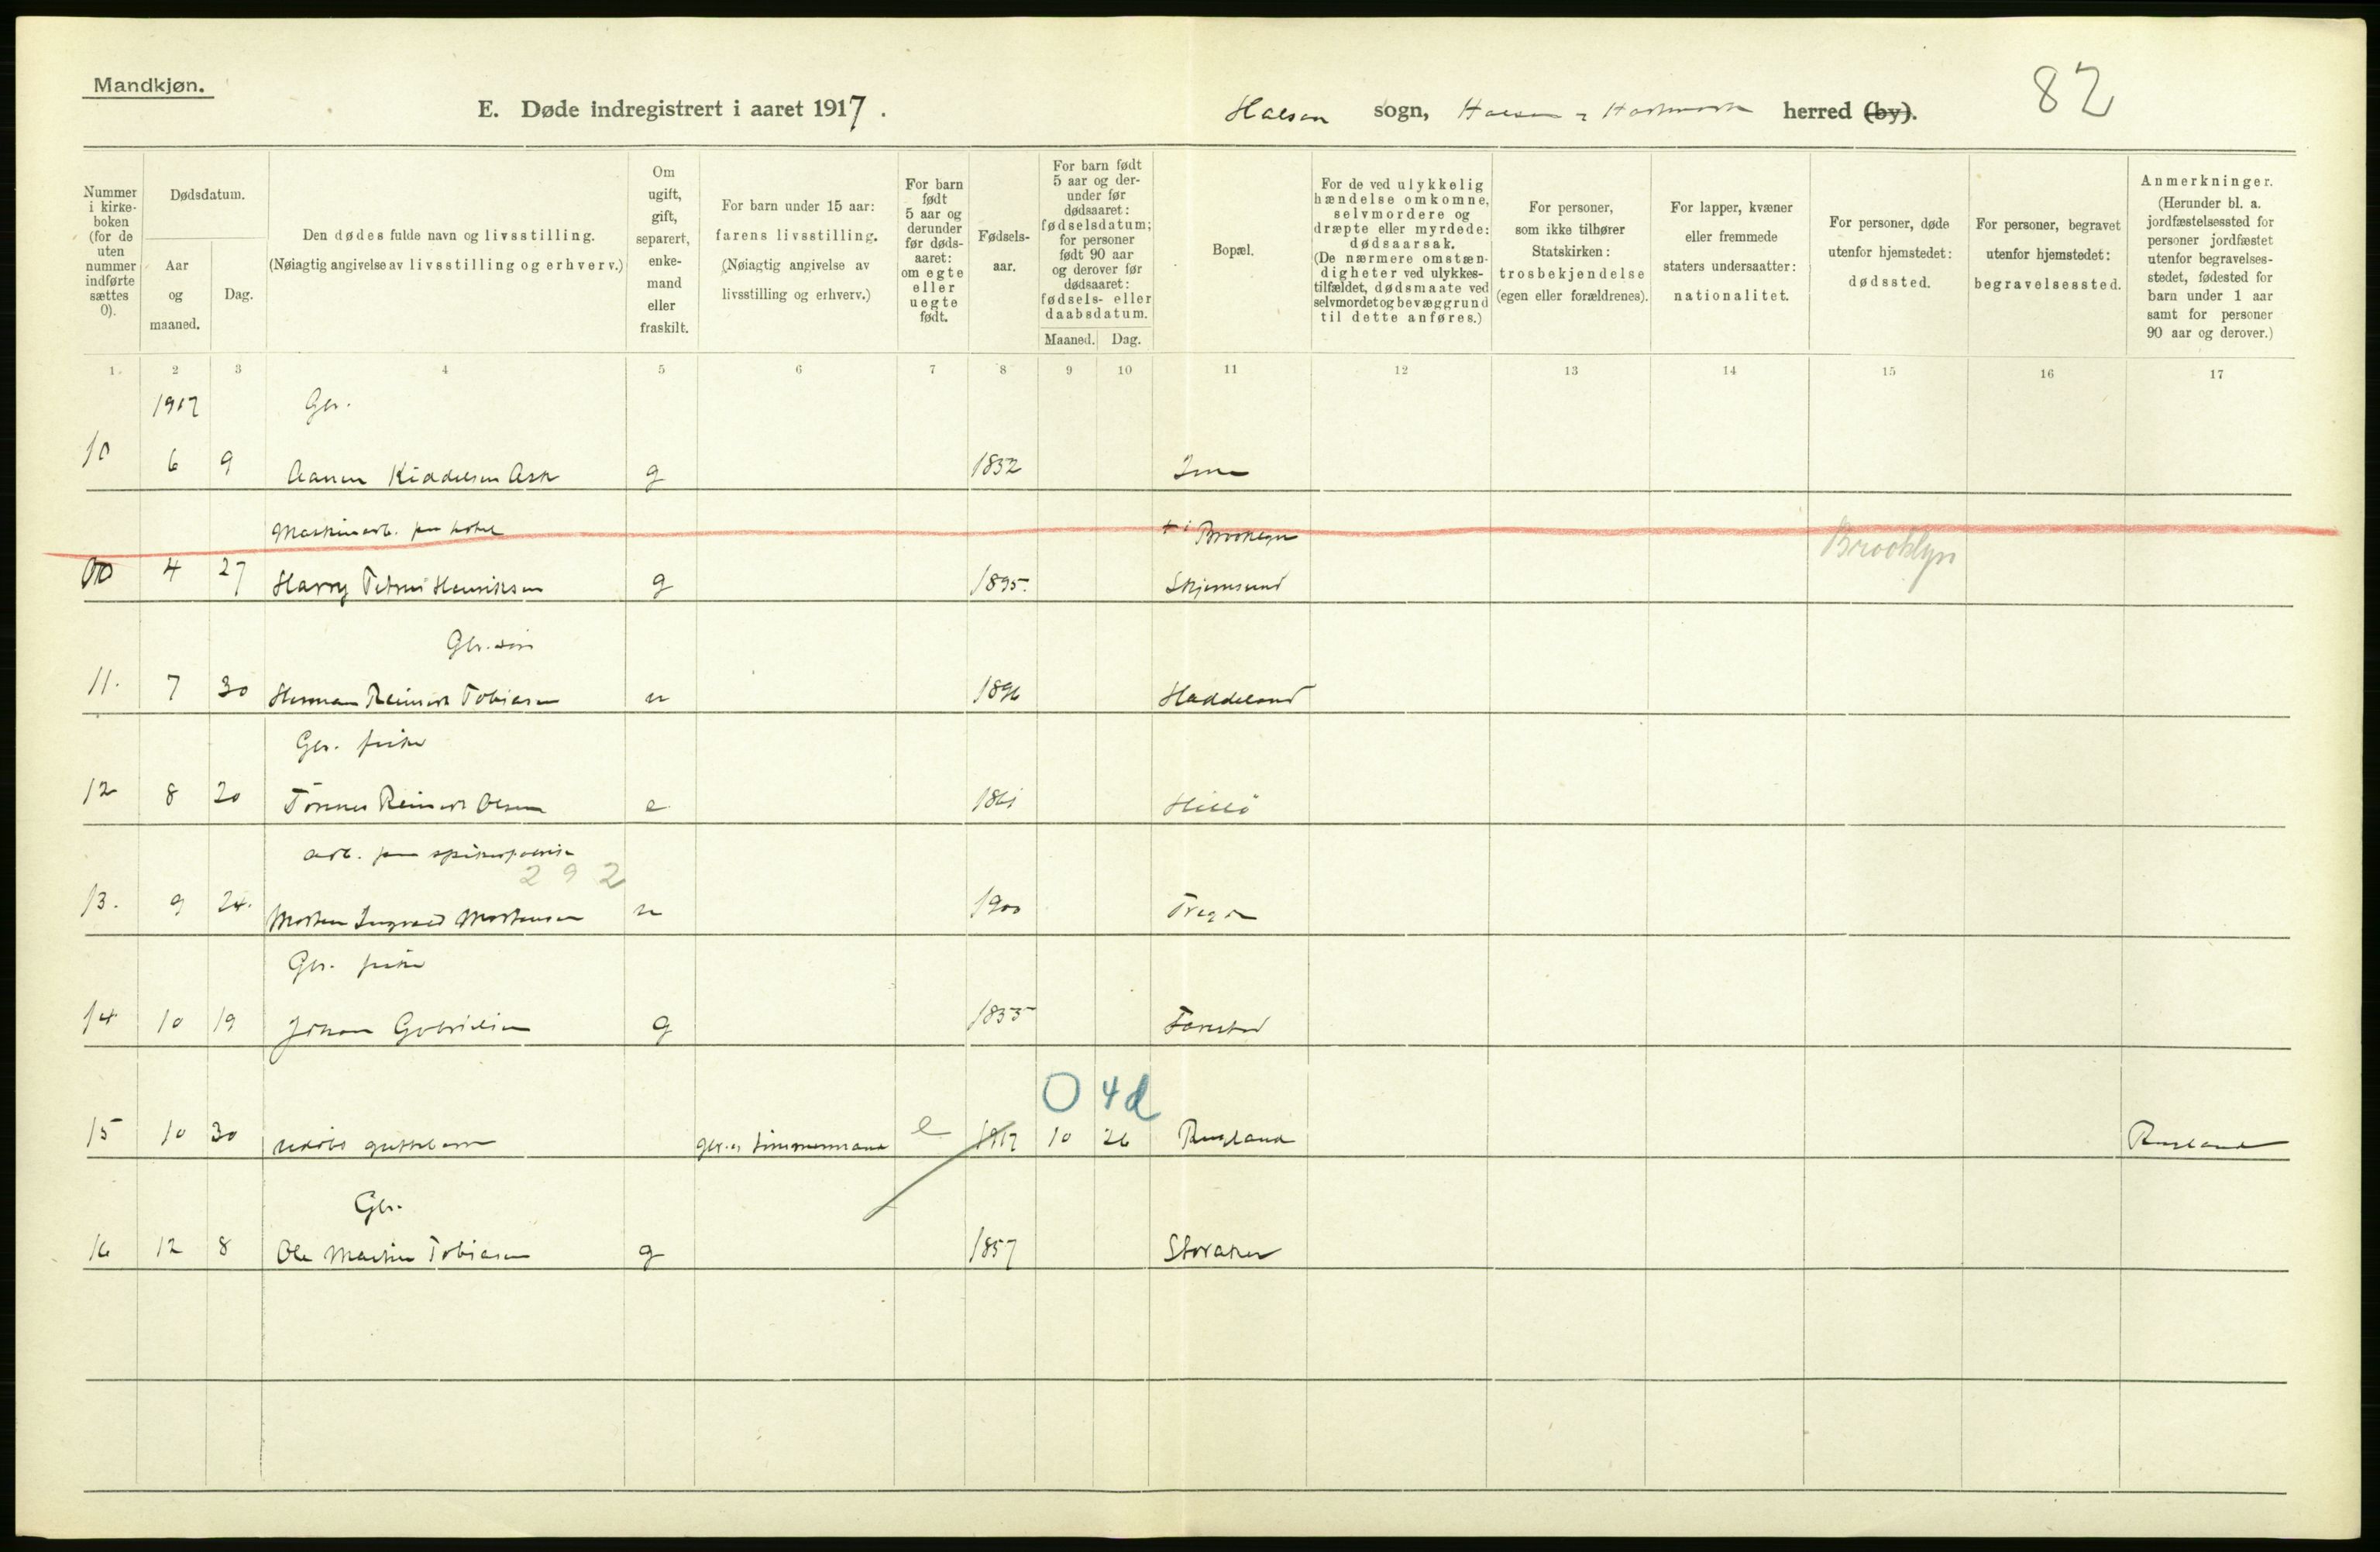 Mandkjøn.
E. Døde indregistrert i aaret 1917. Halsaa sogn, Halsaa herred (by). 82
Nummer i kirkeboken (for de uten nummer indførte sættes 0).
Dødsdatum.
Aar og maaned.
Dag.
Den dødes fulde navn og livsstilling.
(Nøiagtig angivelse av livsstilling og erhverv.)
Om ugift, gift, separert, enkemand eller fraskilt.
For barn under 15 aar: farens livsstilling.
(Nøiagtig angivelse av livsstilling og erhverv.)
For barn født 5 aar og derunder før dødsaaret: om egte eller uegte født.
Fødselsaar.
For barn født 5 aar og derunder før dødsaaret: fødselsdatum; for personer født 90 aar og derover før dødsaaret: fødsels- eller daabsdatum.
Maaned. Dag.
Bopæl.
For de ved ulykkelig hændelse omkomne, selvmordere og dræpte eller myrdede: dødsaarsak.
(De nærmere omstændigheter ved ulykkestilfældet, dødsmaate ved selvmordet og bevæggrund til dette anføres.)
For personer, som ikke tilhører Statskirken: trosbekjendelse (egen eller forældrenes).
For lapper, kvæner eller fremmede staters undersaatter: nationalitet.
For personer, døde utenfor hjemstedet: dødssted.
For personer, begravet utenfor hjemstedet: begravelsessted.
Anmerkninger.
(Herunder bl. a. jordfæstelsessted for personer jordfæstet utenfor begravelsesstedet, fødested for barn under 1 aar samt for personer 90 aar og derover.)
1 2 3 4 5 6 7 8 9 10 11 12 13 14 15 16 17
1917 Gbr.
10 6 9 Aanen Kiddelsen Ask g 1832
Maskinarb. paa hotel i Brooklyn Brooklyn
4 27 Harry Petrus Henriksen g 1895. Skjernsund
Gbr. søn
11. 7 30 Herman Reinert Tobiasen u 1896 Haddeland
Gbr. fisker
12 8 20 Tønnes Reinert Olsen e 1861 Hillø
arb. paa spikerfabrik
292
13. 9 24. Morten Ingvald Mortensen u 1900 Tregde
Gbr. fisker
14 10 19 Johan Gabrielsen g 1835 Tånevik
0 4d
15 10 30 udøbt guttebarn gbr. og tømmermand e 1917 10 26 Rusland Rusland
Gbr.
16 12 8 Ole Martin Tobiasen g 1857 Storaker